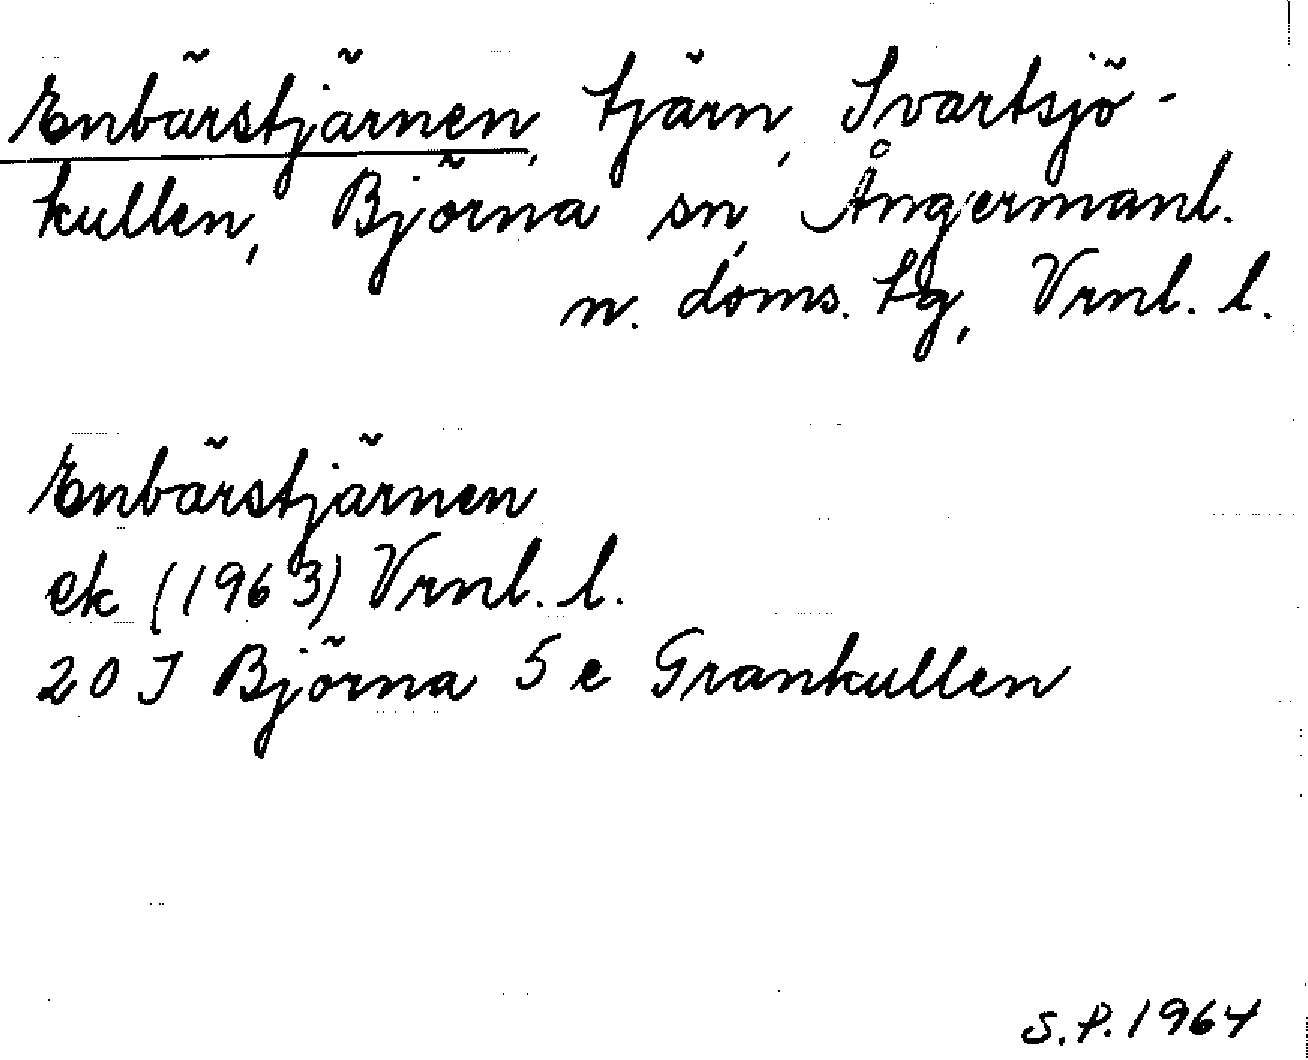 Enbärstjärnen, tjärn, Svartsjö-
kullen, Björna sn, Ångermanl.
n. doms. tg, Vrnl. l.
Enbärstjärnen
ek (1963) Vrnl. l.
20 J Björna 5 e Grankullen
S.P. 1964